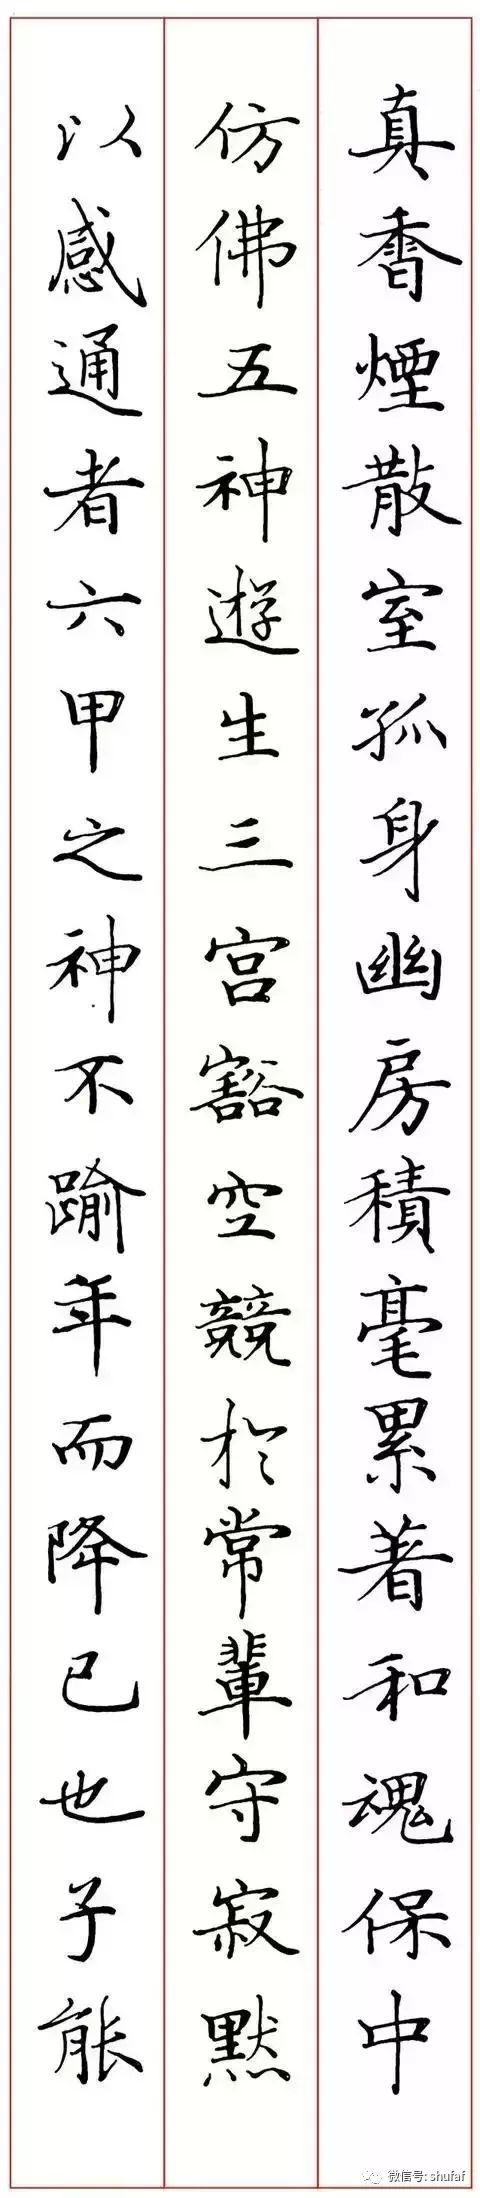 真香煙散室孤身幽房積毫累著和魂保中
仿佛五神遊生三宫豁空競於常輩守寂默
以感通者六甲之神不踰年而降已也子能
微信号: shufaf